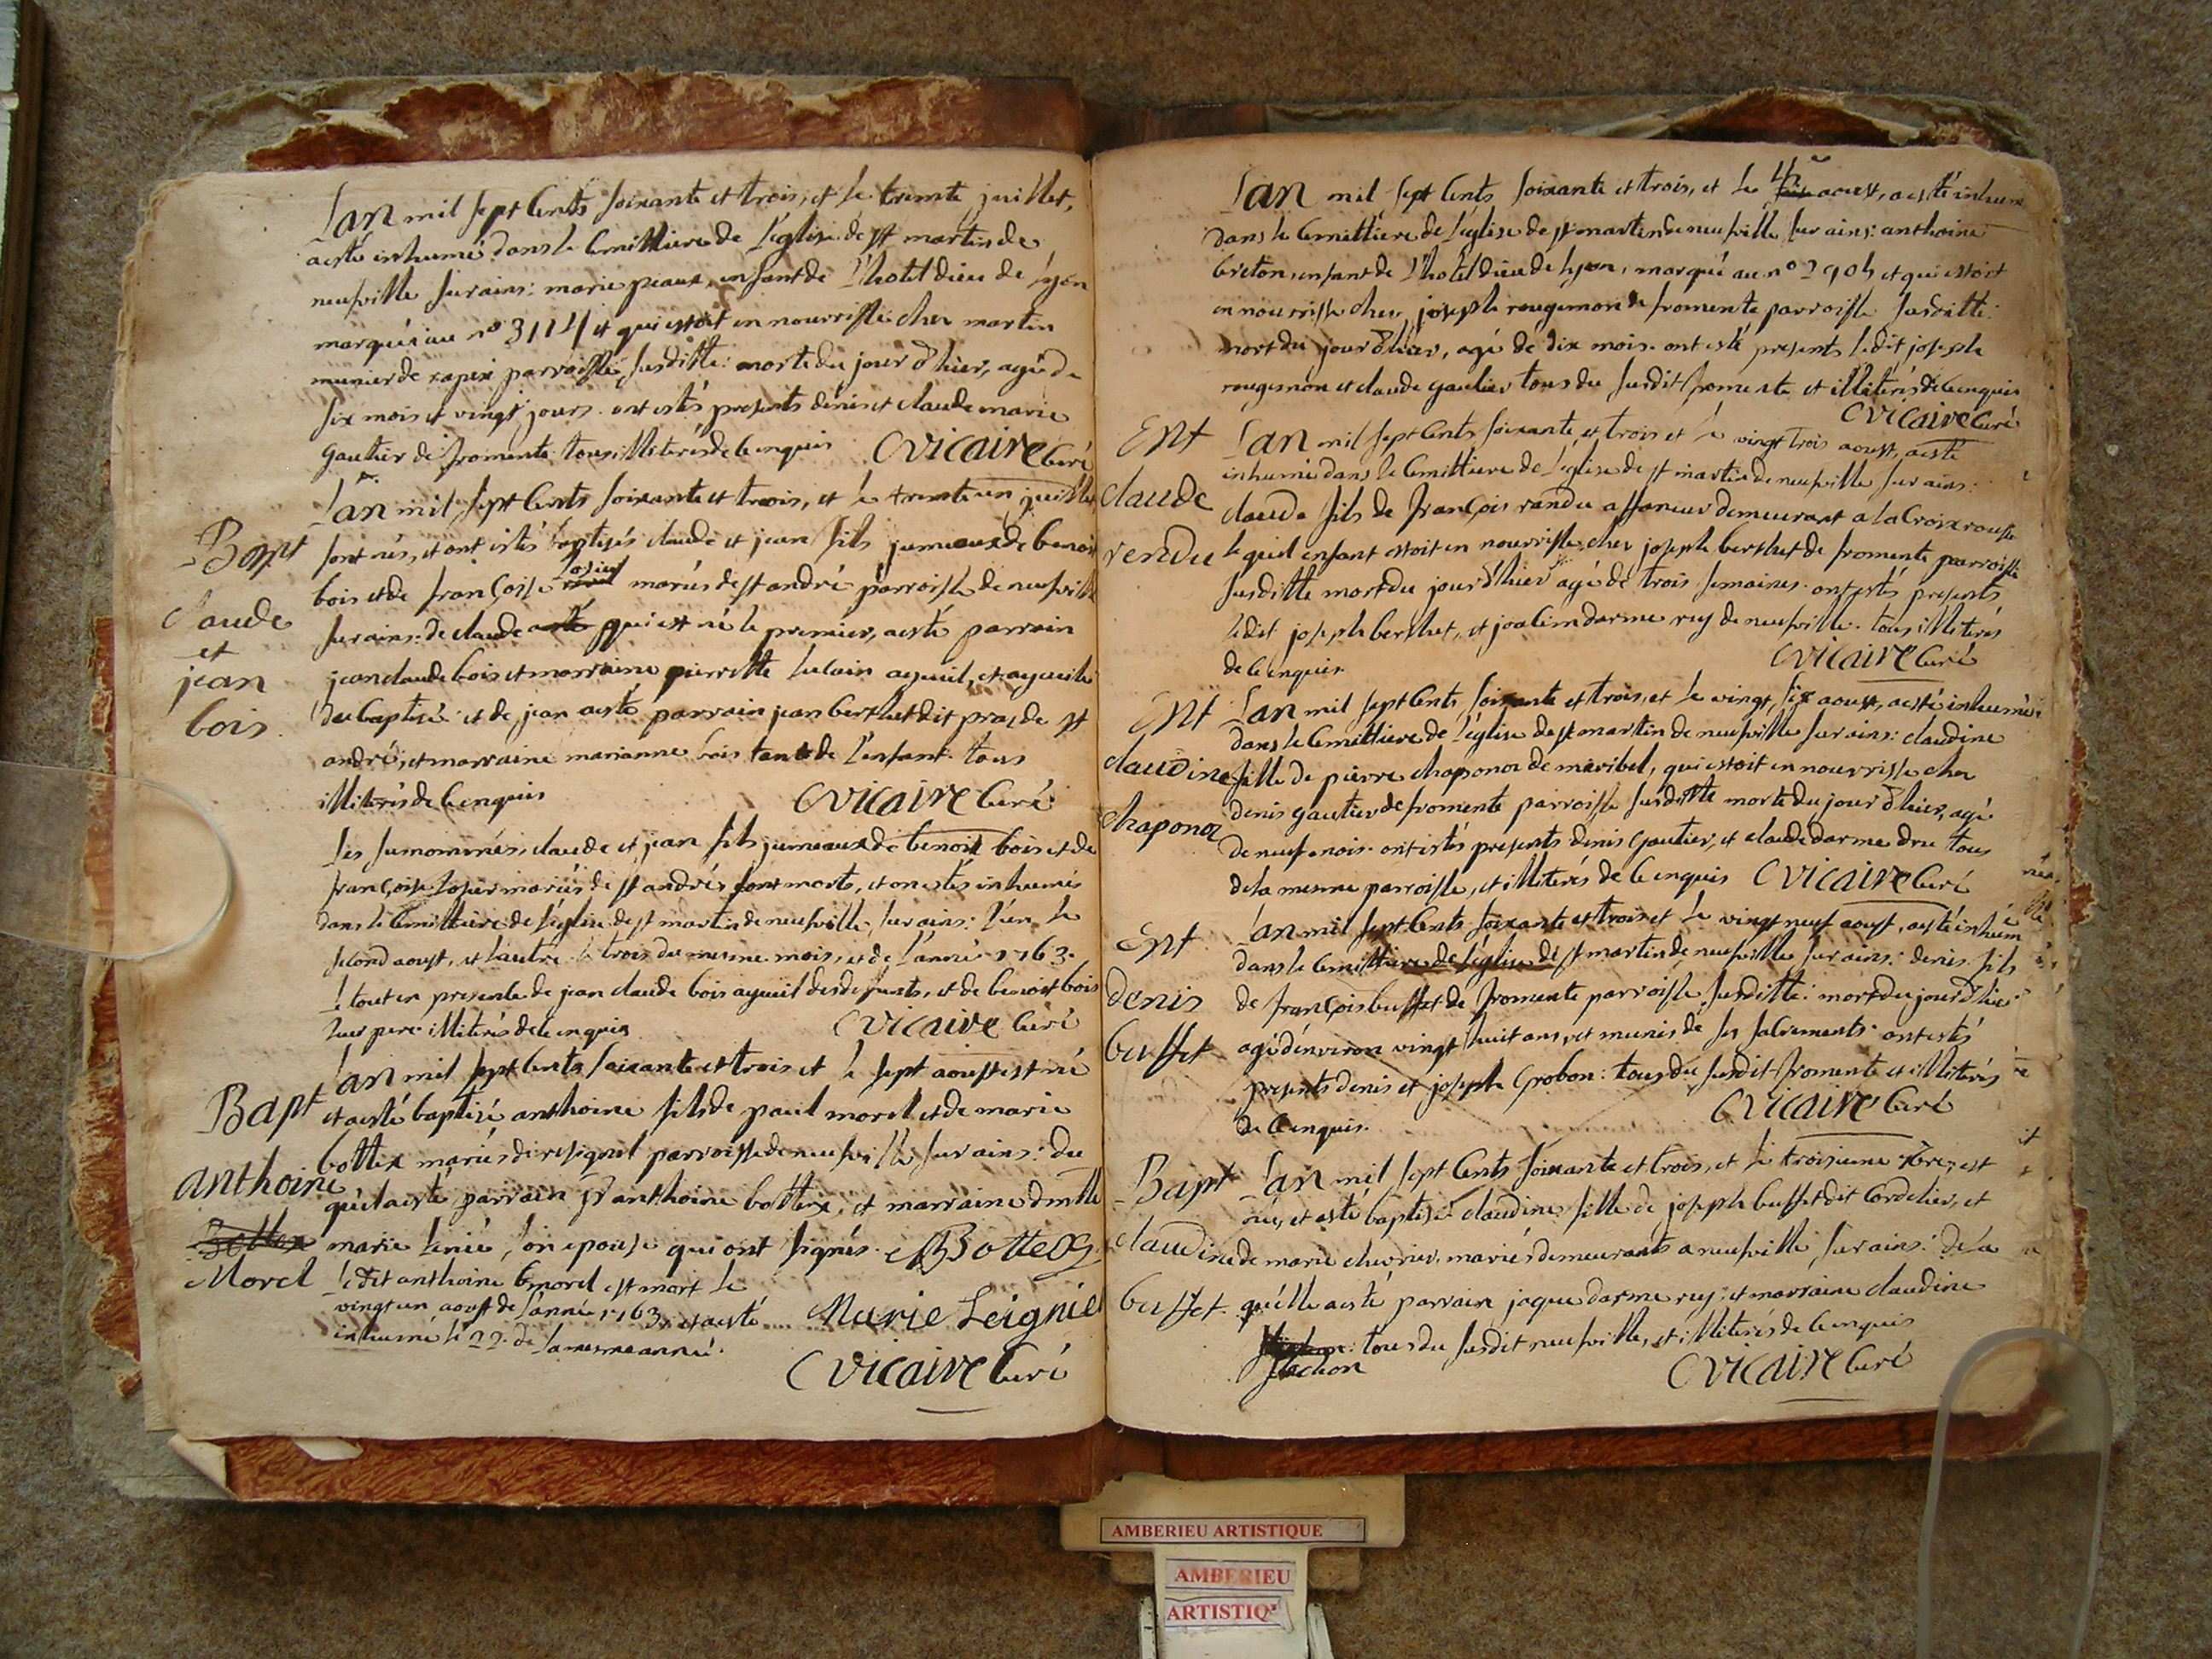 Lan mil sept cents soixante et trois, et le trente juillet,
a esté inhumé dans le cemittiere de l'église de st martin de
neufville sur ains: marie peaux, enfant de l'hotel dieu de lyon
marquée au no 3114 et qui estoit en nourrisse chez martin
munier de rapex parroisse susditte: morte du jour d'hier, agée de
six mois et vingt jours. ont estés presents denis et claude marie
gautier de fromente tous illiterés de ce enquis CVicaire Curé
Bapt
claude
et
jean
bois
Lan mil sept cents soixante et trois, et le trente un juillet
sont nés, et ont estés baptisés claude et jean fils jumeaux de benoit
bois et de françoise losier mariés de st andré parroisse de neufville
sur ains: de claude qui est né le premier, a esté parrain
jean claude bois et marraine pierrette ayeuil, et ayeuile
du baptisé: et de jean a esté parrain jean berthet dit pras de st
andré, et marraine marianne bois tante de l'enfant. tous
illiterés de ce enquis CVicaire Curé
les surnommés, claude et jean fils jumeaux de benoit bois et de
françoise losier mariés de st andrés sont morts, et on estés inhumés
dans le cemittiere de l'église de st martin de neufville sur ains: l'un le
second aoust, et l'autre le trois du mesme mois, et de l'anné 1763.
le tout en presente de jean claude bois ayeuil des defunts, et de benoit bois
leur pere illiterés de ce enquis CVicaive Curé
Bapt
anthoine
Bottex
Morel
Lan mil sept cents soixante et trois et le sept aoust est né
et a esté baptisé anthoine fils de paul morel et de marie
bottex mariés de resignel parroisse de neufville sur ains: du
quel a esté parrain Sr anthoine bottex, et marraine dmlle
marie lenié, son epouse qui ont signés. ABottex
le dit anthoine morel est mort le
vingt un aoust de l'anné 1763, et a esté Marie Leignié
inhumé le 22 de la mesme anné.
CVicaire Curé
Lan mil sept cents soixante et trois, et le 4e aoust, a esté inhumé
dans le cemittiere de l'église de st martin de neufville sur ains: anthoine
breton, enfant de l'hotel dieu de lyon, marqué au no 2904 et qui estoit
en nourrisse chez joseph rougemon de fromente parroisse susditte:
mort du jour d'hier, agé de dix mois. ont esté presents ledit joseph
rougemon et claude gautier tous du susdit fromente et illiterés de ce enquis
CVicaire Curé
Ent
claude
rendu
Lan mil sept cents soixante et trois et le vingt trois aoust, a esté
inhumé dans le cemittiere de l'église de st martin de neufville sur ains:
claude fils de françois randu affaneur demeurant a la Croix rousse
le quel enfant estoit en nourrisse chez joseph berthet de fromente parroisse
susditte mort du jour d'hier agé de trois semaines. ont estés presents
ledit joseph berthet, et joachim darme ruy de neufville. tous illiterés
de ce enquis. CVicaire Curé
Ent
claudine
chaponoz
Lan mil sept cents soixante et trois, et le vingt six aoust, a esté inhumée
dans le cemittiere de l'église de st martin de neufville sur ains: claudine
fille de pierre chaponoz de miribel, qui estoit en nourrisse chez
denis gautier de fromente parroisse susditte morte du jour d'hier, agé
de neuf mois. ont estés presents denis gautier, et claude darme dru tous
de la mesme parroisse, et illiterés de ce enquis CVicaire Curé
Ent
denis
buffet
Lan mil sept cents soixante et trois et le vingt neuf aoust, a esté inhumé
dans le cemittiere de l'église de st martin de neufville sur ains: denis fils
de françois buffet de fromente parroisse susditte: mort du jour d'hier
agé d'environ vingt huit ans, et munis de ses sacrements. ont estés
presents denis et joseph grobon: tous du susdit fromente et illiterés
de ce enquis. CVicaire Curé
Bapt
claudine
buffet
Lan mil sept cents soixante et trois, et le troisieme 7bre, est
née, et a esté baptisé claudine fille de joseph buffet dit Cordelier, et
de marie chevrier mariés demeurants a neufville sur ains: de la
quelle a esté parrain jaque darme ruy: et marraine claudine
flechon tous du susdit neufville, et illiterés de ce enquis
CVicaire Curé
AMBERIEU ARTISTIQUE
AMBERIEU
ARTISTIQ